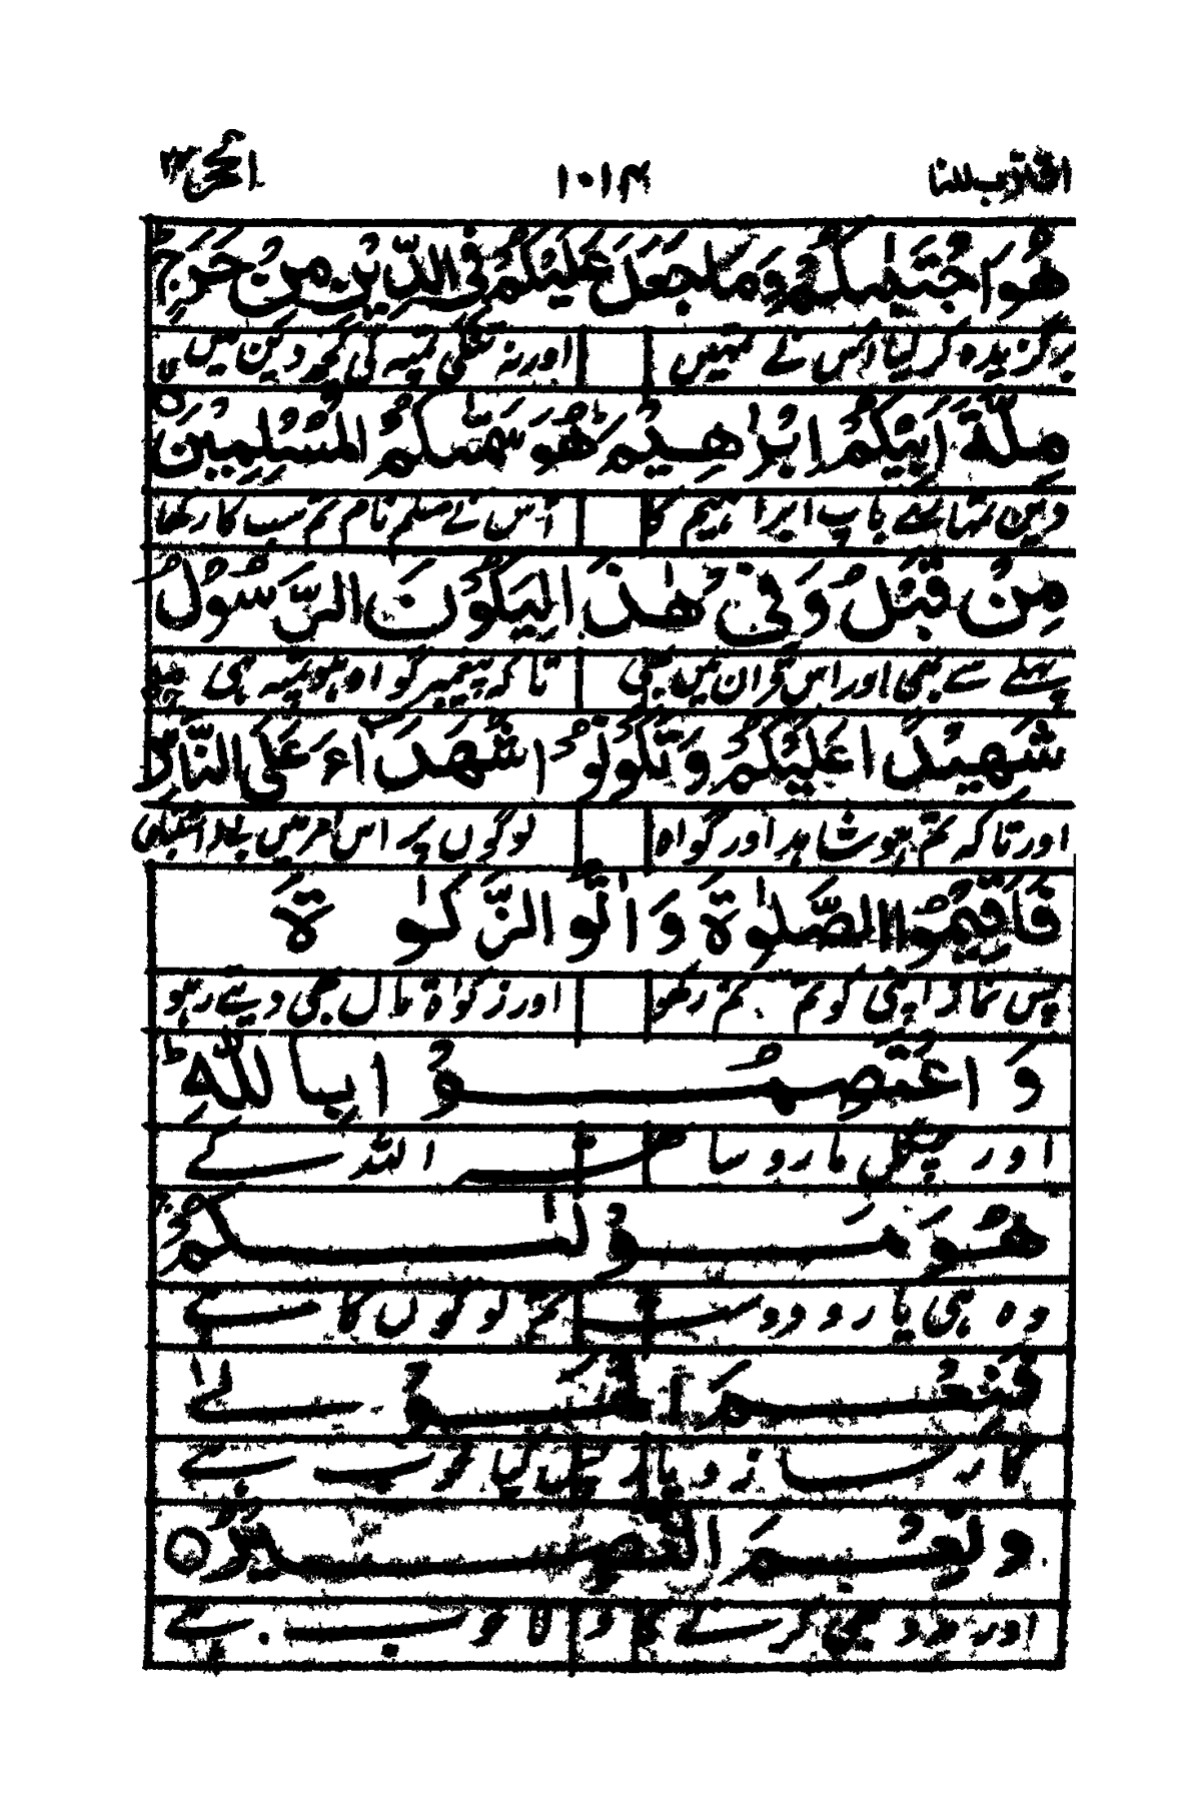 اقترب للناس ۱۰۱۴ الحج ۲۲
هُوَ اجْتَبٰىكُمْ وَمَا جَعَلَ عَلَيْكُمْ فِى الدِّيْنِ مِنْ حَرَجٍ ؕ
برگزیدہ کر لیا اس نے تمہیں اور نہ تنگی تمپہ کی کچھ دین میں
مِلَّةَ اَبِيْكُمْ اِبْرٰهِيْمَ ؕ هُوَ سَمّٰىكُمُ الْمُسْلِمِيْنَ
دین تمہارے باپ ابراہیم کا اس نے مسلم نام تم سب کا رکھا
مِنْ قَبْلُ وَفِىْ هٰذَا لِيَكُوْنَ الرَّسُوْلُ
پہلے سے بھی اور اس قرآن میں بھی تاکہ پیغمبر گواہ ہو تمپہ ہی
شَهِيْدًا عَلَيْكُمْ وَتَكُوْنُوْا شُهَدَآءَ عَلَى النَّاسِ
اور تاکہ تم ہو شاہد اور گواہ لوگوں پر اس
فَاَقِيْمُوا الصَّلٰوةَ وَاٰتُوا الزَّكٰوةَ
پس نماز اپنی کو تم تم رکھو اور زکوٰۃ مال بھی دیتے رہو
وَاعْتَصِمُوْا بِاللّٰهِ ؕ
اور چنگل مارو سا اللہ کے
هُوَ مَوْلٰىكُمْ ۚ
وہ ہی یار و دوست تم لوگوں کا ہے
فَنِعْمَ الْمَوْلٰى
وَنِعْمَ النَّصِيْرُ ۝
اور مرد بھی کرنے کا وہ خوب ہے